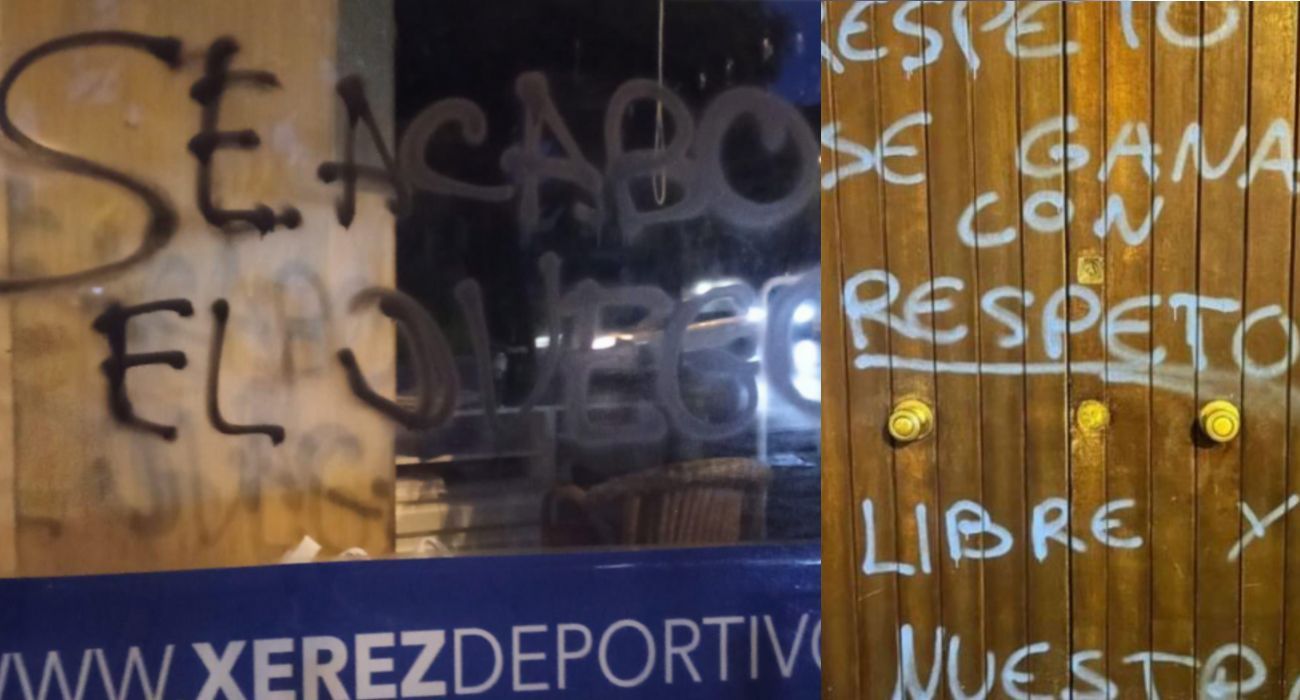 SE ACABO
EL JUEGO
WWW.XEREZDEPORTIVO
RESPETO
SE GANA
CON
RESPETO
LIBRE Y
NUESTRO